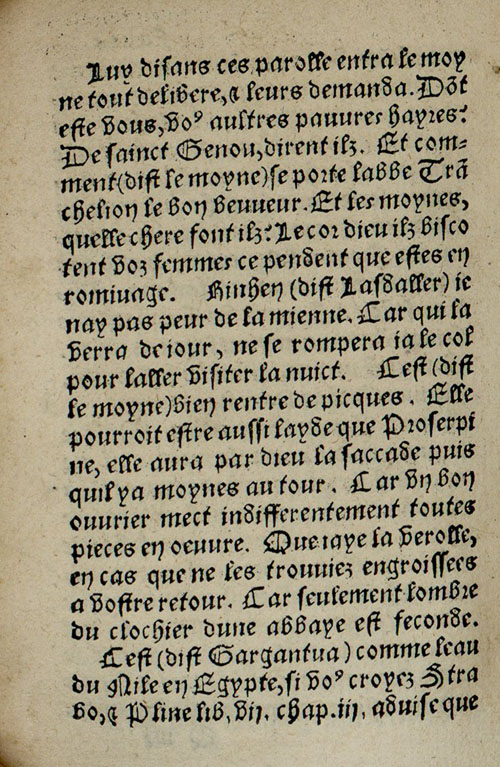 Luy disans ces parolle entra le moy
ne tout delibere, & leurs demanda. Dōt
este vous, vo⁹ aultres pauures hayres?
De sainct Genou, dirent ilz. Et com-
ment (dist le moyne) se porte labbe Trā
chelion le bon beuueur. Et les moynes,
quelle chere font ilz? Le cor dieu ilz bisco
tent voz femmes ce pendent que estes en
romiuage. Hinhen (dist Lasdaller) ie
nay pas peur de la mienne. Car qui la
verra de iour, ne se rompera ia le col
pour laller visiter la nuict. Cest (dist
le moyne) bien rentre de picques. Elle
pourroit estre aussi layde que Proserpi
ne, elle aura par dieu la saccade puis
quil ya moynes au tour. Car vn bon
ouurier mect indifferentement toutes
pieces en oeuure. Que iaye la verolle,
en cas que ne les trouuiez engroissees
a vostre retour. Car seulement lombre
du clochier dune abbaye est feconde.
Cest (dist Gargantua) comme leau
du Nile en Egypte, si vo⁹ croyez Stra
bo, & Pline lib, vij. chap. iij, aduise que